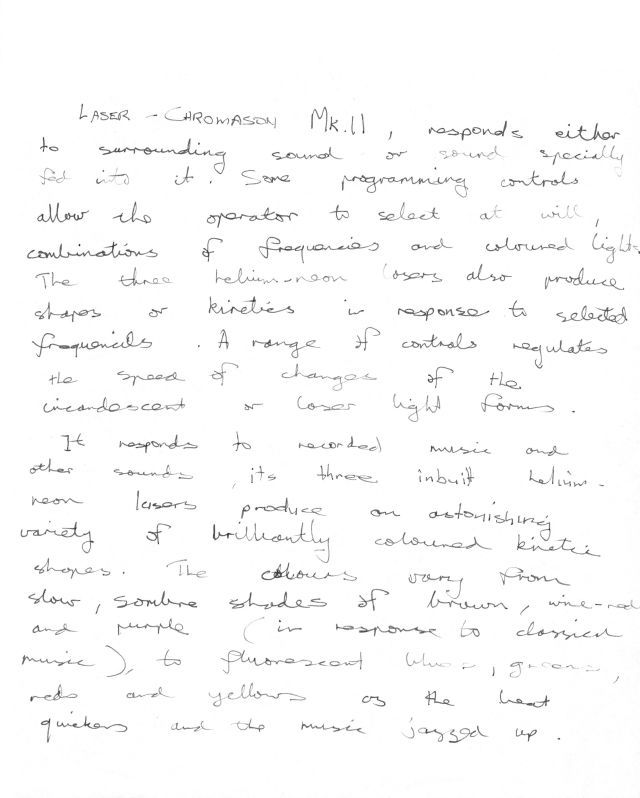 LASER - CHROMASON Mk.II, responds either
to surrounding sound or sound specially
fed into it. Some programming controls
allow the operator to select at will,
combinations of frequencies and coloured lights.
The three helium-neon lasers also produce
shapes or kinetics in response to selected
frequencies. A range of controls regulates
the speed of changes of the
incandescent or laser light forms.
It responds to recorded music and
other sounds, its three inbuilt helium-
neon lasers produce an astonishing
variety of brilliantly coloured kinetic
shapes. The colours vary from
slow, sombre shades of brown, wine-red
and purple (in response to classical
music), to fluorescent blues, greens,
reds and yellows as the beat
quickens and the music jazzed up.